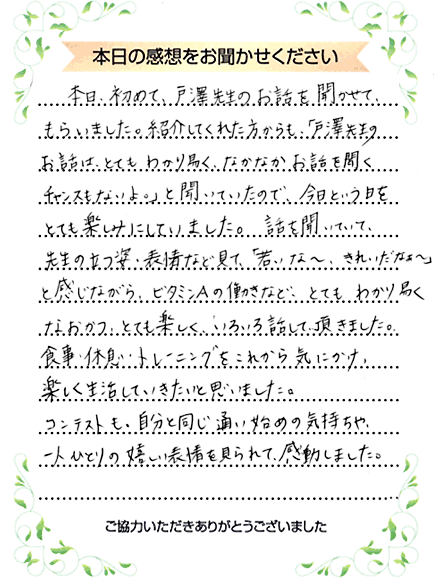 本日の感想をお聞かせください
本日、初めて、戸澤先生のお話を聞かせて、
もらいました。紹介してくれた方からも、「戸澤先生の
お話は、とても わかり易く、なかなか お話を聞く
チャンスもないよ。」と聞いていたので、今日という日を
とても楽しみにしていました。 話を聞いていて、
先生の立つ姿・表情など見て、「若いな〜、きれいだなぁ〜」
と感じながら、ビタミンAの働きなど、とても わかり易く
なおかつ、とても楽しく、いろいろ話して頂きました。
食事・休息・トレーニングをこれから気にかけ、
楽しく生活していきたいと思いました。
コンテストも、自分と同じ通い始めの気持ちや、
一人ひとりの嬉しい表情を見られて、感動しました。
ご協力いただきありがとうございました